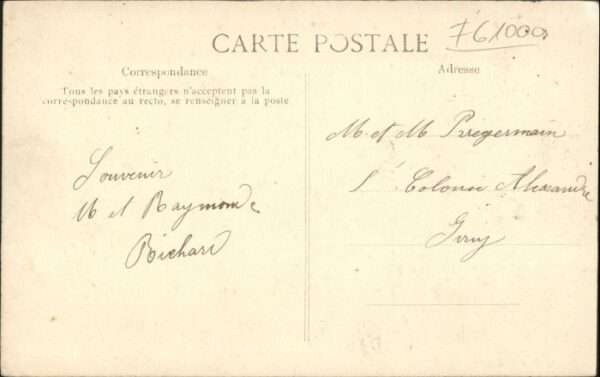 CARTE POSTALE
761000
Correspondance
Tous les pays étrangers n'acceptent pas la
correspondance au recto, se renseigner à la poste
Souvenir
M et Raymonde
Richard
Adresse
M et M Pregermain
Colonie Alexandre